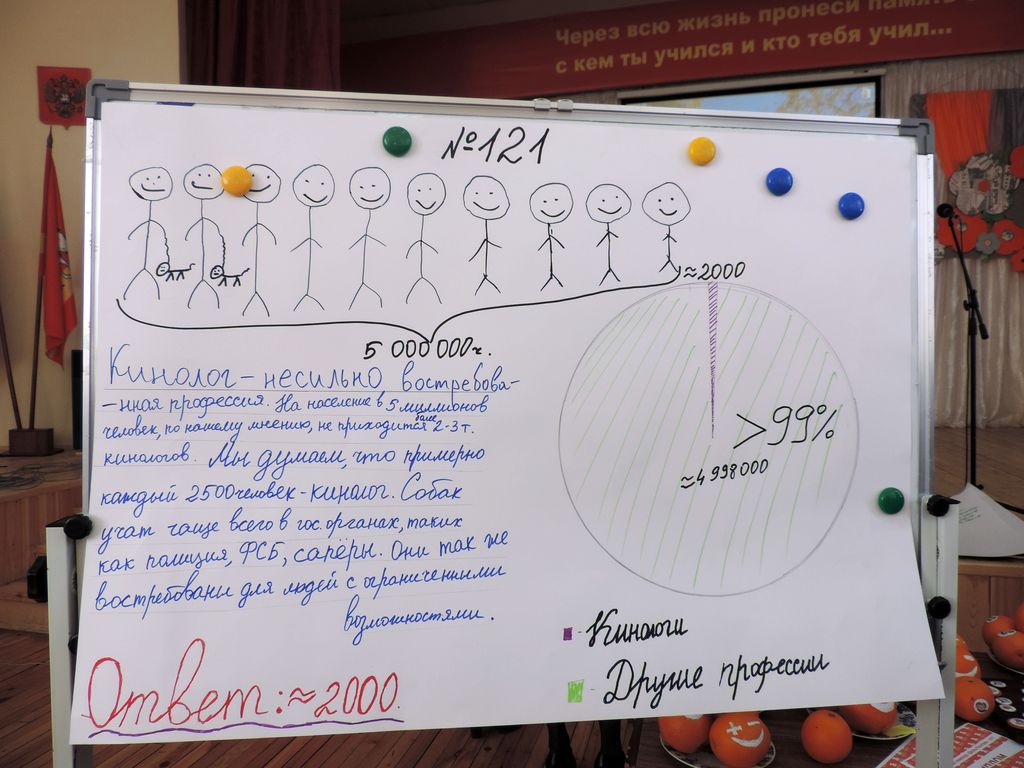 Через всю жизнь пронеси память о
с кем ты учился и кто тебя учил...
№121
5 000 000 ч.
≈2000
>99%
≈4 998 000
Кинолог - несильно востребова-
-нная профессия. На население в 5 миллионов
человек, по нашему мнению, не приходится более 2-3 т.
кинологов. Мы думаем, что примерно
каждый 2500 человек - кинолог. Собак
учат чаще всего в гос. органах, таких
как полиция, ФСБ, сапёры. Они так же
востребованы для людей с ограниченными
возможностями.
Ответ: ≈2000.
- Кинологи
- Другие профессии